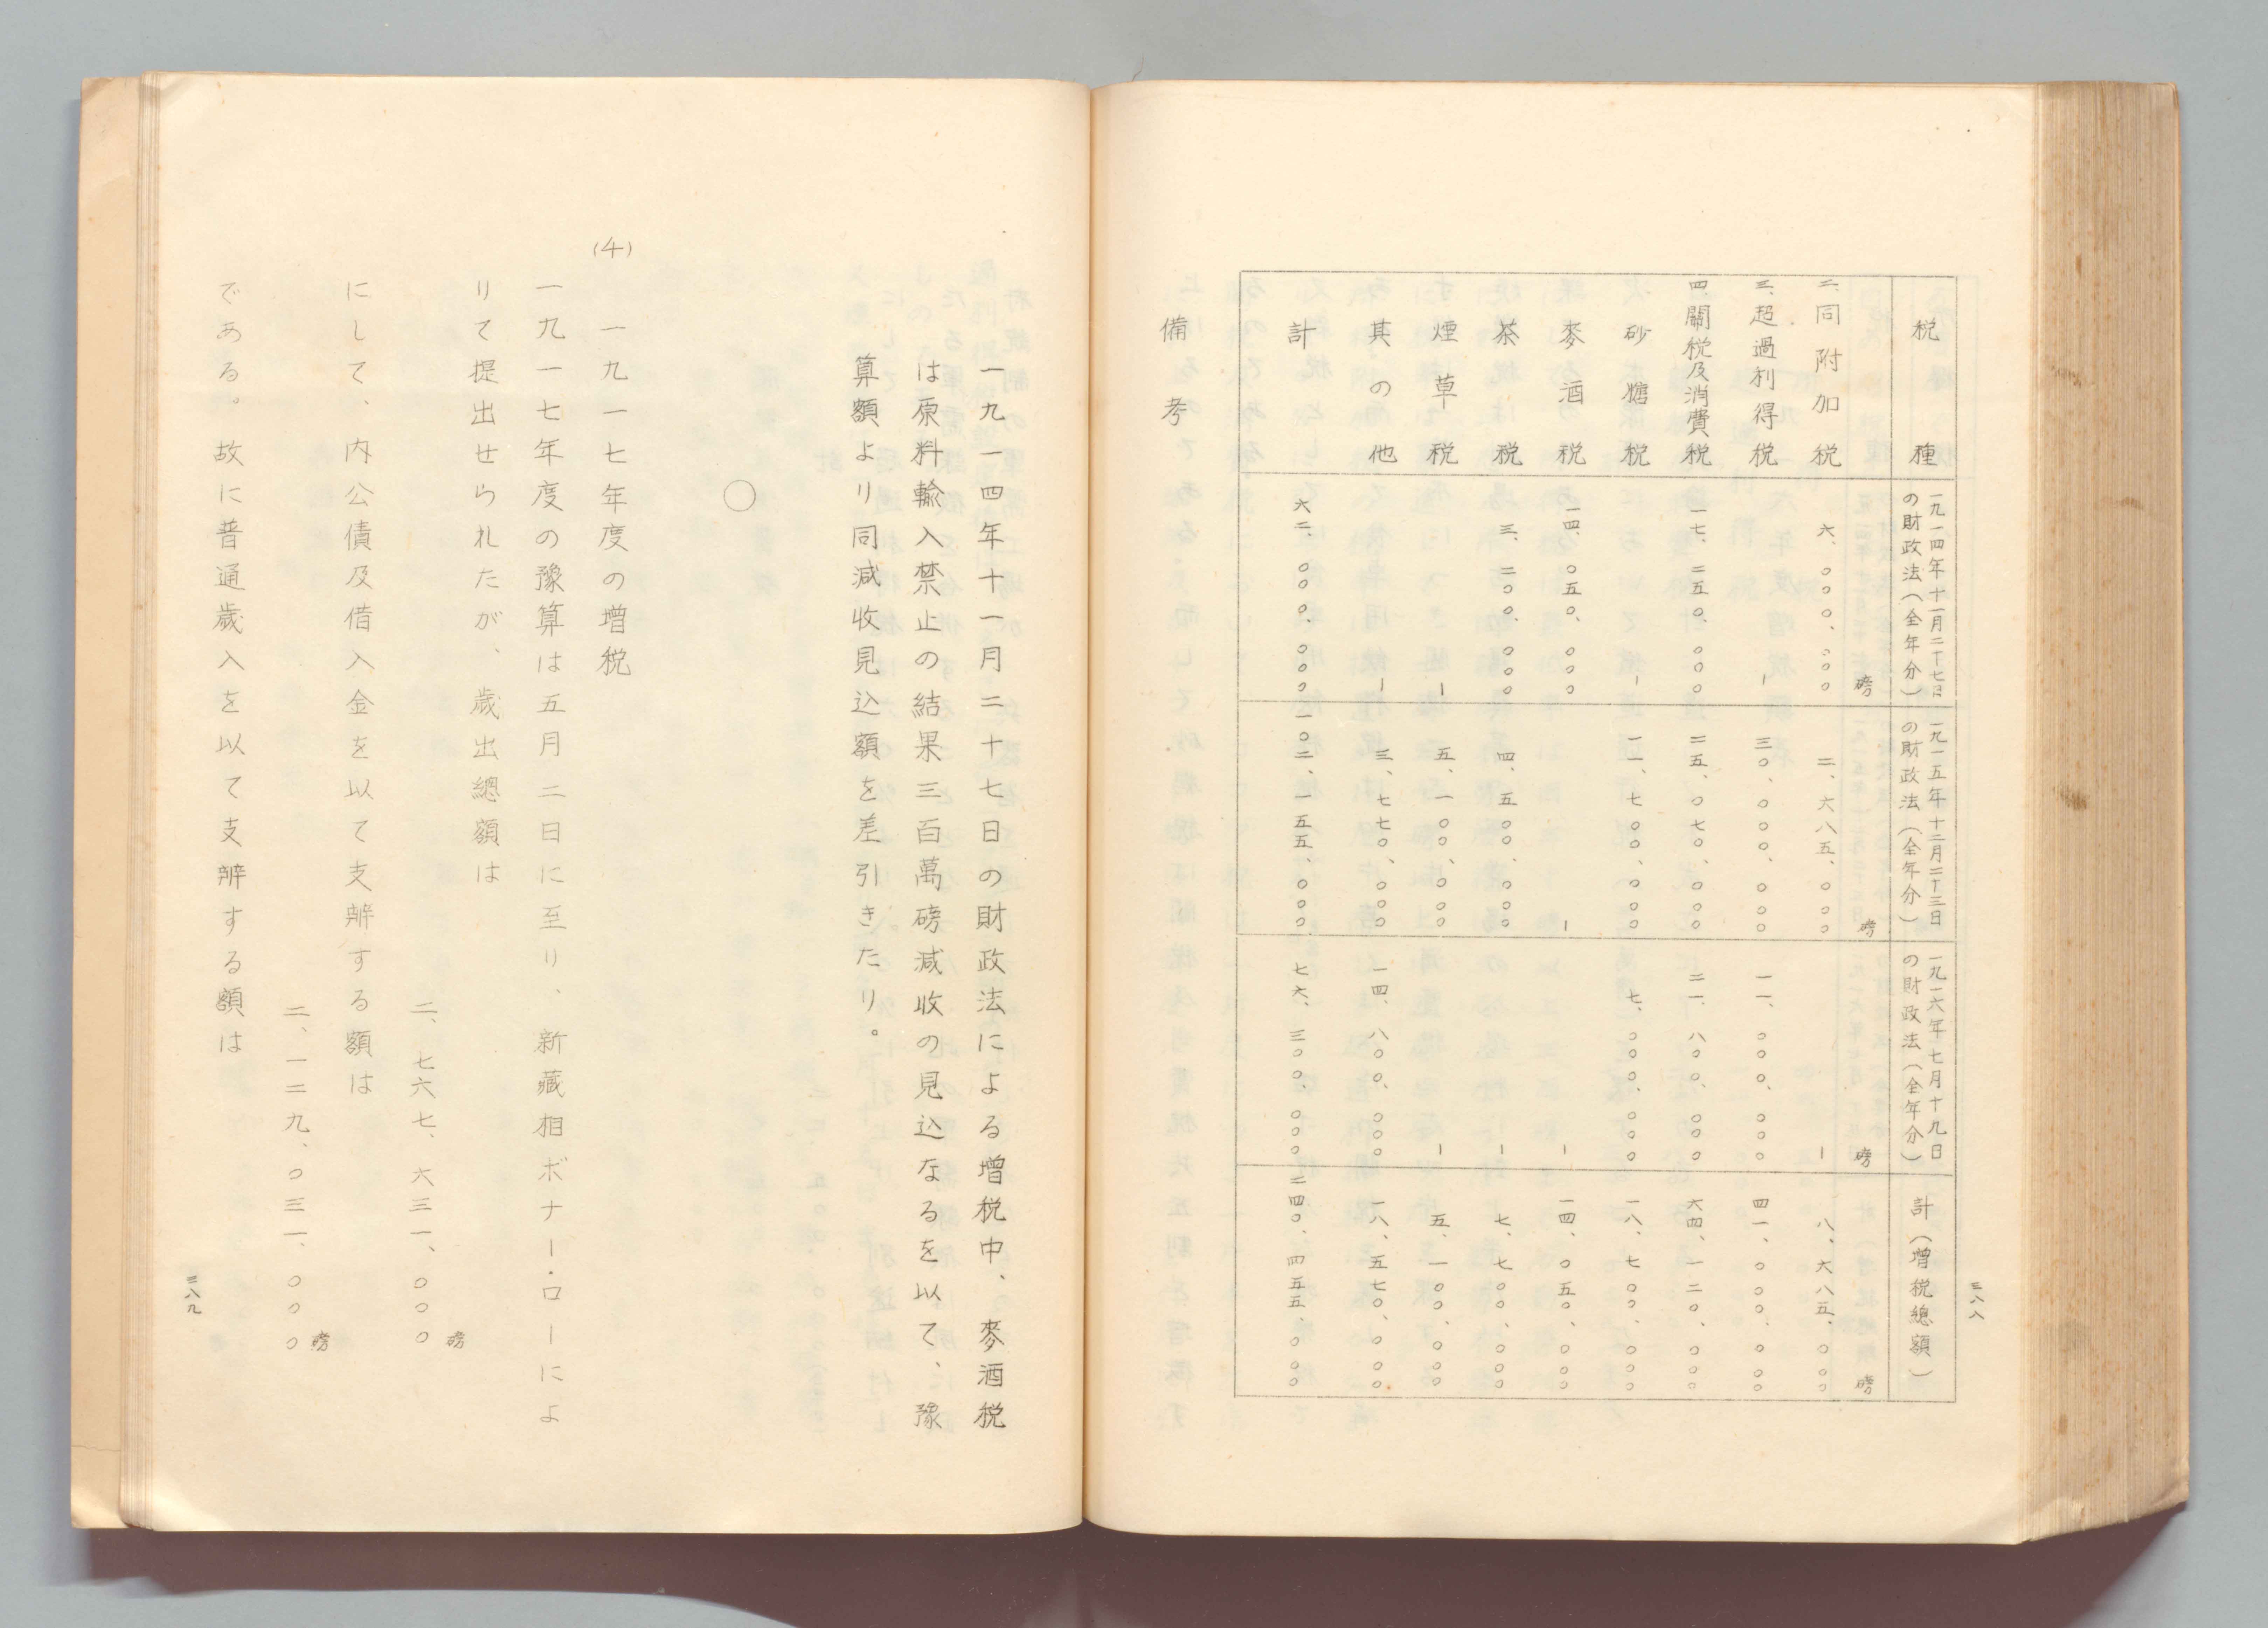 三八八
税種 一九一四年十一月二十七日の財政法(全年分) 一九一五年十二月二十三日の財政法(全年分) 一九一六年七月十九日の財政法(全年分) 計(增税總額)
磅 磅 磅 磅
二、同附加税 六、〇〇〇、〇〇〇 二、六八五、〇〇〇 ー 八、六八五、〇〇〇
三、超過利得税 ー 三〇、〇〇〇、〇〇〇 一一、〇〇〇、〇〇〇 四一、〇〇〇、〇〇〇
四、關税及消費税 一七、二五〇、〇〇〇 二五、〇七〇、〇〇〇 二一、八〇〇、〇〇〇 六四、一二〇、〇〇〇
砂糖税 ー 一一、七〇〇、〇〇〇 七、〇〇〇、〇〇〇 一八、七〇〇、〇〇〇
麥酒税 一四、〇五〇、〇〇〇 ー ー 一四、〇五〇、〇〇〇
茶税 三、二〇〇、〇〇〇 四、五〇〇、〇〇〇 ー 七、七〇〇、〇〇〇
煙草税 ー 五、一〇〇、〇〇〇 ー 五、一〇〇、〇〇〇
其の他 ー 三、七七〇、〇〇〇 一四、八〇〇、〇〇〇 一八、五七〇、〇〇〇
計 六二、〇〇〇、〇〇〇 一〇二、一五五、〇〇〇 七六、三〇〇、〇〇〇 二四〇、四五五、〇〇〇
備考
一九一四年十一月二十七日の財政法による增税中、麥酒税
は原料輸入禁止の結果三百萬磅減收の見込なるを以て、豫
算額より同減收見込額を差引きたり。
〇
(4) 一九一七年度の增税
一九一七年度の豫算は五月二日に至り、新藏相ボナー・ローによ
りて提出せられたが、歳出總額は
二、七六七、六三一、〇〇〇磅
にして、内公債及借入金を以て支辨する額は
二、一二九、〇三一、〇〇〇磅
である。故に普通歳入を以て支辨する額は
三八九